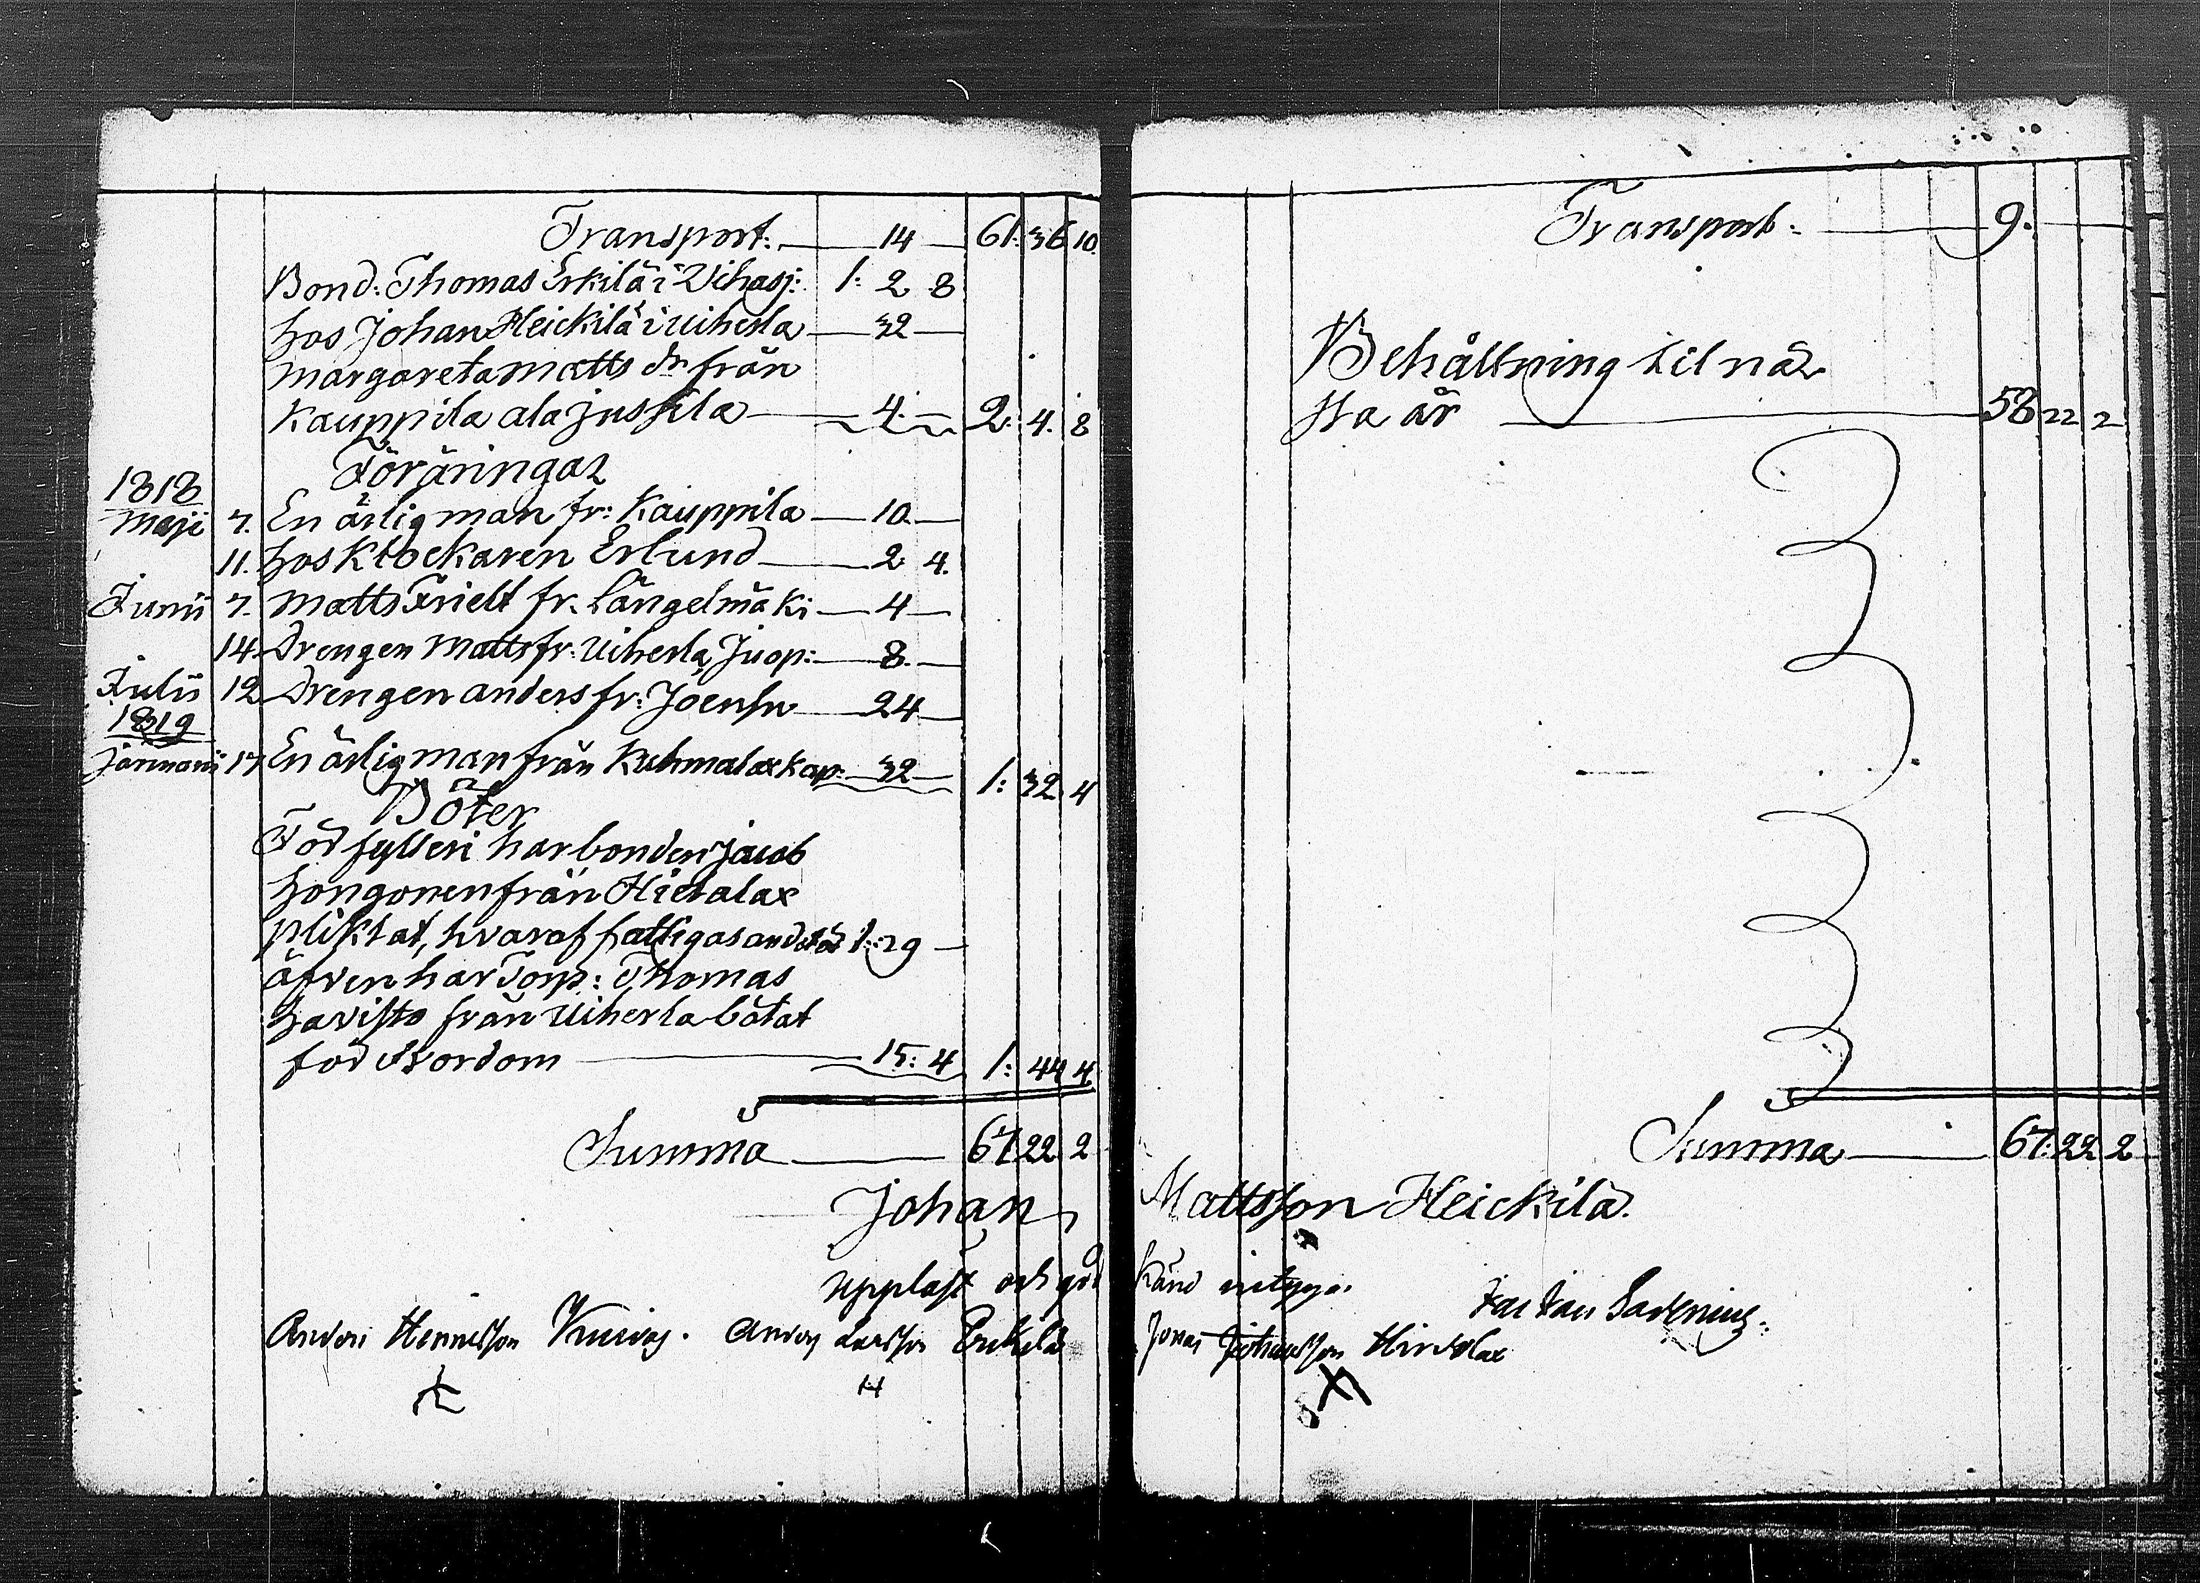 Transport. 14 61: 36 10.
Bond: Thomas Erkilä i Vihasj: 1: 2 8
hos Johan Heickilä i Uiherla 32
margareta matts dr från
Kauppila ala jussila 4. 2: 4. 8
Föräringar
1818
Maji 7. En ärlig man fr: Kauppila 10.
11. hos Klockaren Erlund 2 4.
Junii 7. matts Frielt fr. Längelmäki 4
14. Drengen Matts fr: Uiherla Juop: 8.
Julii 12 Drengen anders fr: Joensu 24
1819
Januarii 17 En ärlig man från Kuhmalax kap: 32 1: 32 4
Böter
För fylleri har bonden jacob
hongonen från Hietalax
pliktat, hvaraf fattigas andel är 1: 29
äfven har Torp: Thomas
havisto från Uiherla bötat
för Hordom 15: 4 1: 44 4
Summa 67 22 2
Johan
uppläst och god
Anders Larsson Erkilä
H
Transport. 9.
Behållning til näs
sta år 58 22 2
Summa 67: 22 2
Mattsson Heickilä.
känd intygar
Jonas Johansson Hirvelax